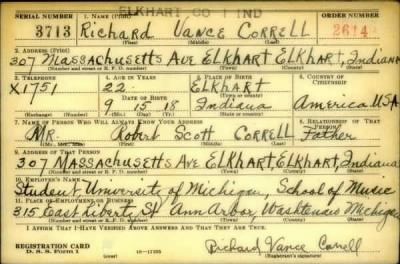 ELKHART CO IND
SERIAL NUMBER 1. NAME (Print) ORDER NUMBER
3713 Richard Vance Correll 2614
(First) (Middle) (Last)
2. ADDRESS (Print)
307 Massachusetts Ave Elkhart Elkhart, Indiana
(Number and street or R. F. D. number) (Town) (County) (State)
3. TELEPHONE 4. AGE IN YEARS 5. PLACE OF BIRTH 6. COUNTRY OF CITIZENSHIP
X1751 22 Elkhart
DATE OF BIRTH (Town or county)
9 15 18 Indiana America USA
(Exchange) (Number) (Mo.) (Day) (Yr.) (State or country)
7. NAME OF PERSON WHO WILL ALWAYS KNOW YOUR ADDRESS 8. RELATIONSHIP OF THAT PERSON
Mr. Robert Scott Correll Father
(Mr., Mrs., Miss) (First) (Middle) (Last)
9. ADDRESS OF THAT PERSON
307 Massachusetts Ave Elkhart, Elkhart, Indiana
(Number and street or R. F. D. number) (Town) (County) (State)
10. EMPLOYER'S NAME
Student, University of Michigan, School of Music
11. PLACE OF EMPLOYMENT OR BUSINESS
315 East Liberty St Ann Arbor, Washtenaw Michigan
(Number and street or R. F. D. number) (Town) (County) (State)
I AFFIRM THAT I HAVE VERIFIED ABOVE ANSWERS AND THAT THEY ARE TRUE.
REGISTRATION CARD
D. S. S. Form 1 (over) 16-17105 Richard Vance Correll
(Registrant's signature)